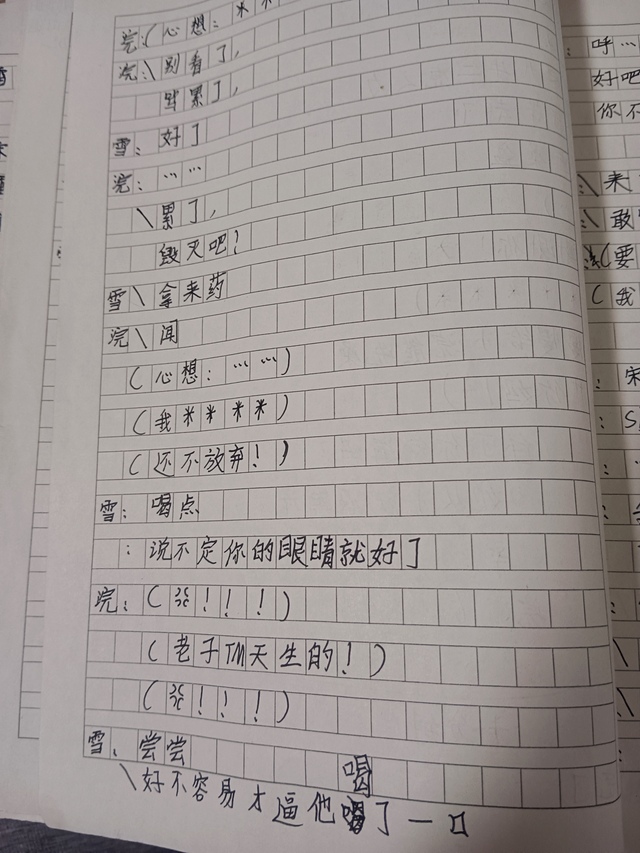 浣:(心想:*
浣:\别看了,
累了,
雪:好了
浣:……
\累了,
毁灭吧?
雪\拿来药
浣\闻
(心想:……)
(我****)
(还不放弃!)
雪:喝点
:说不定你的眼睛就好了
浣:(!!!)
(老子TM天生的!)
(!!!)
雪、尝尝
\好不容易才逼他喝了一口
呼…
好吧
你不
\来
\敢
(要
(我
:宋
:S